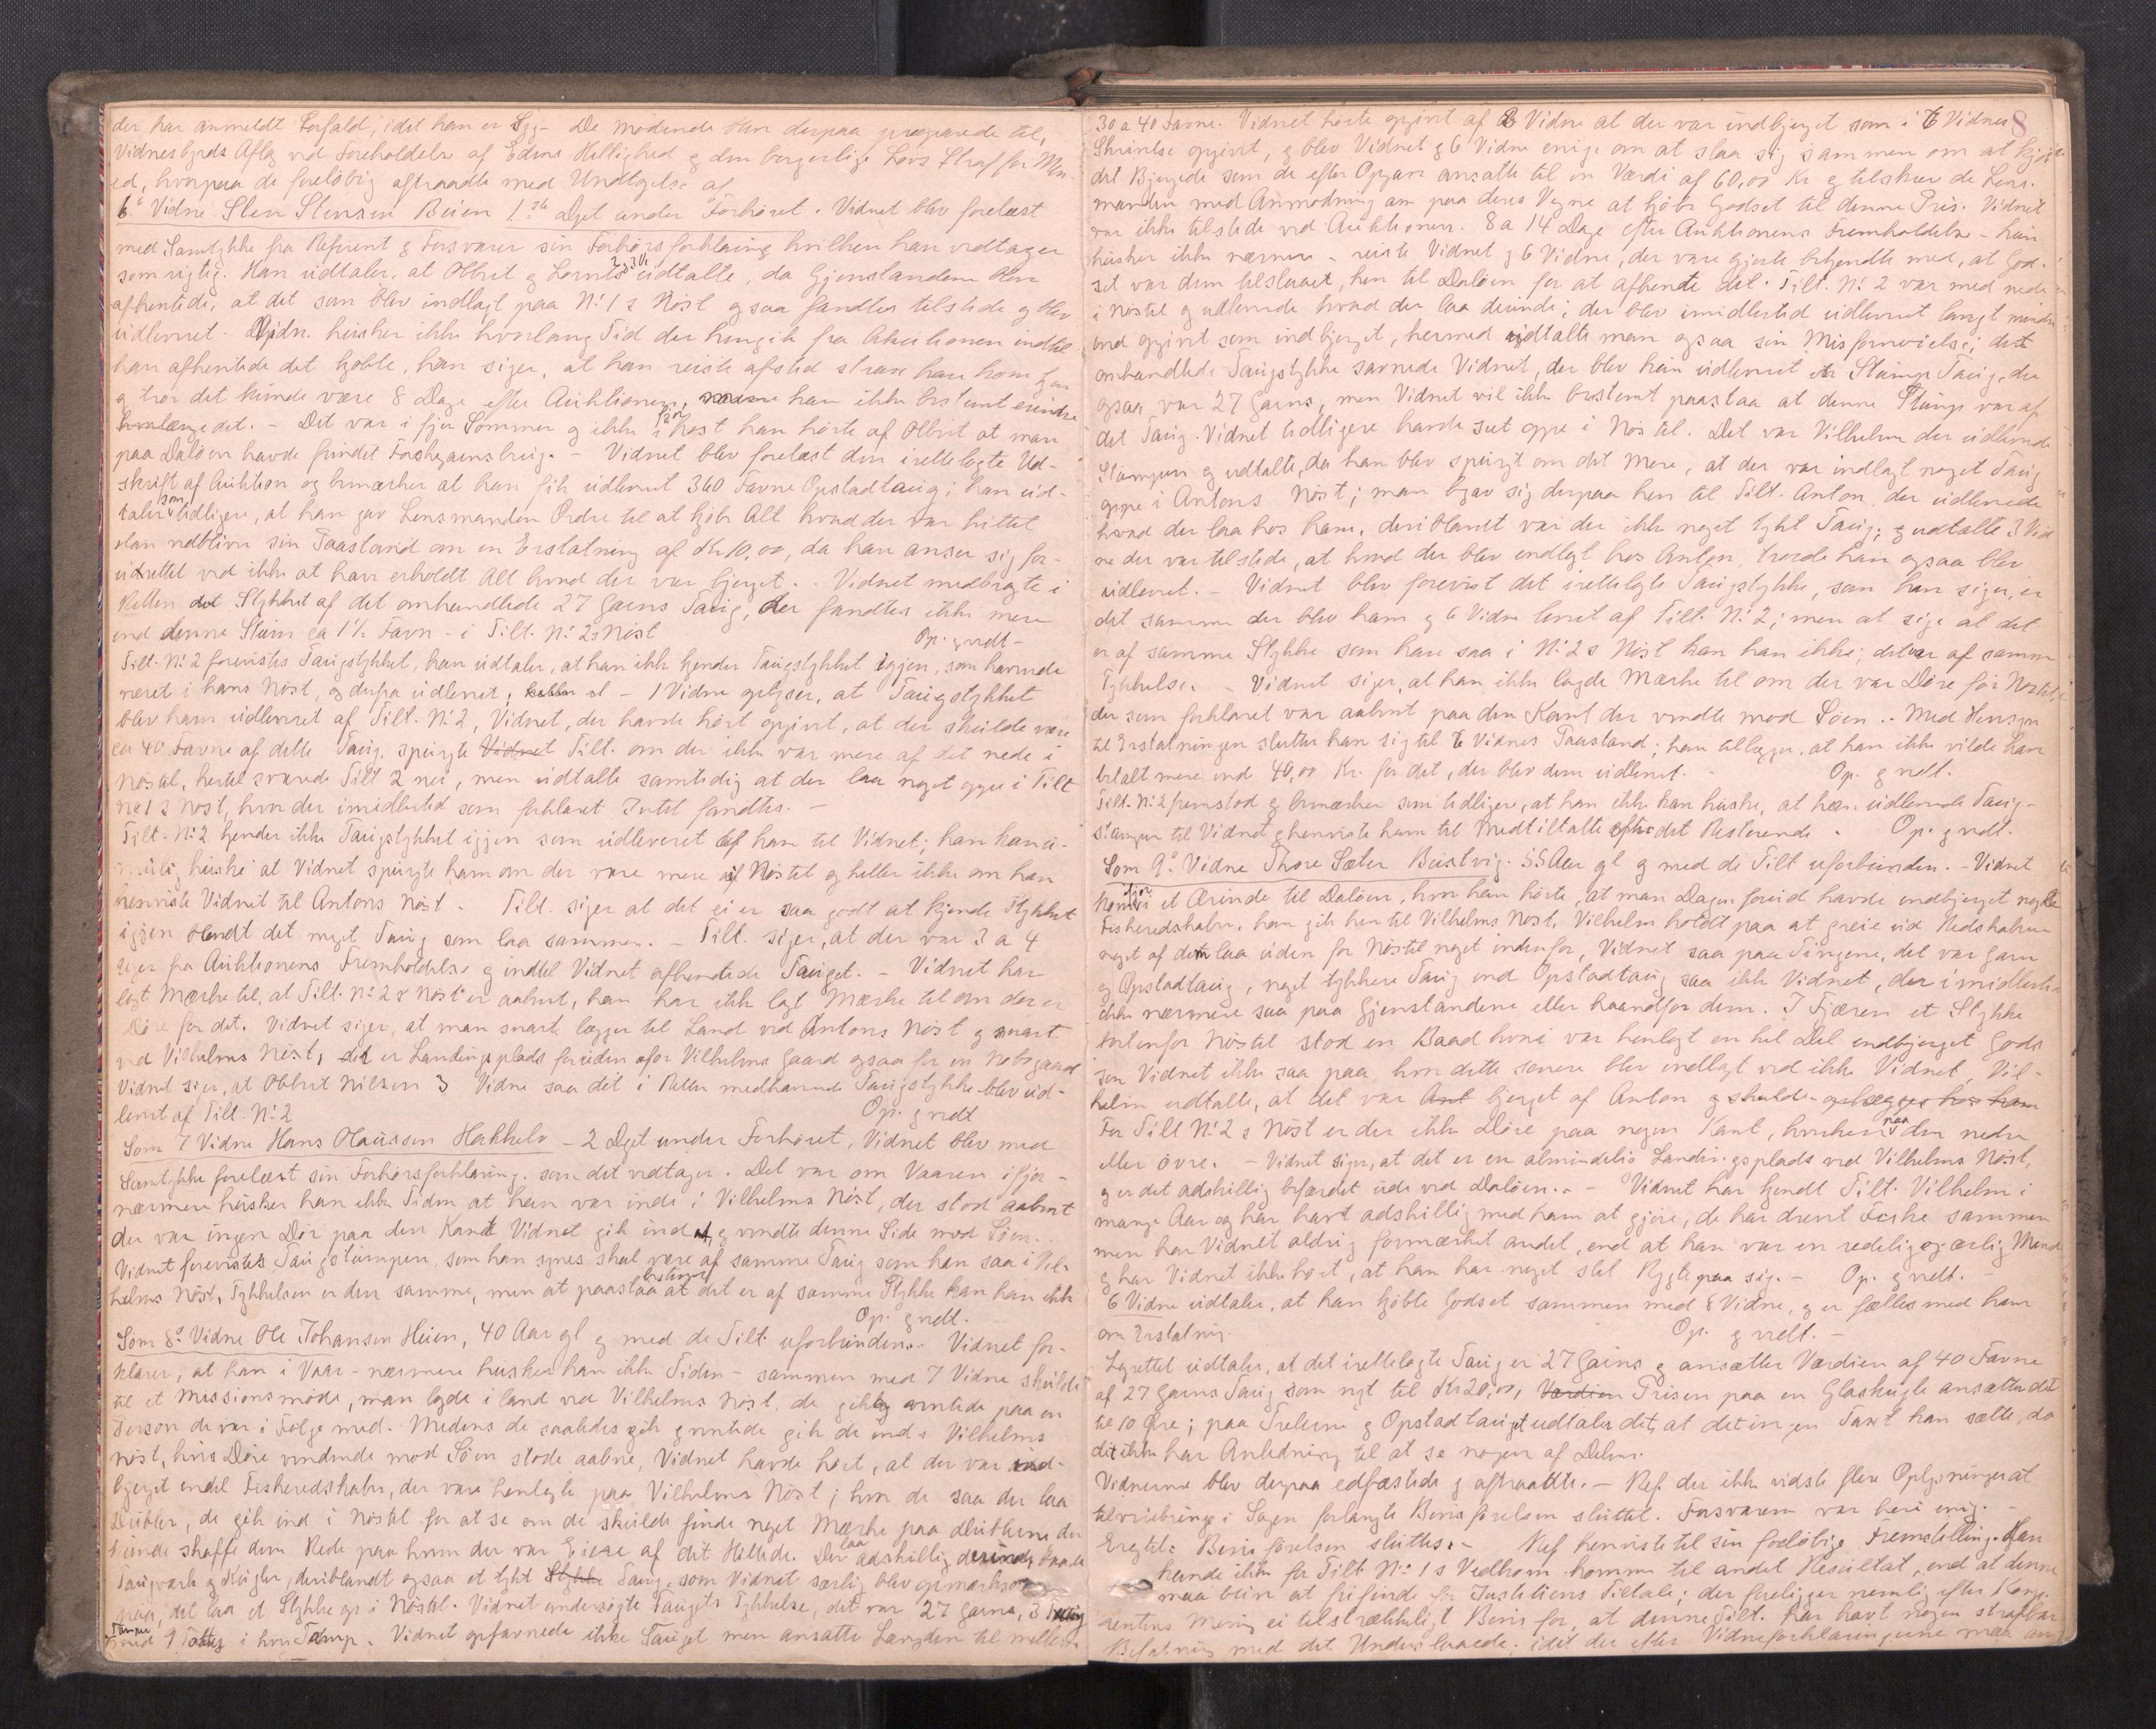 der har anmeldt Forfald, idet han er Syg.- De mødende blev derpaa præparerede til,
Vidnesbyrds Aflæg ved Foreholdelse af Edens Hellighed og den borgerlige Lovs Straf for Men-
ed, hvorpaa de foreløbig aftraadte med Undtagelse af
6te Vidne Sten Stensen Beien 1ste Dgt under Forhøret. Vidnet blev forelæst
med Samtykke fra Referent og Forsvarer sin Forhørsforklaring hvilken han vedtager
som rigtig. Han udtaler, at Olbert og Lornts 2 og 3 V. udtalte, da Gjenstandene blev
afhentede, at det som blev indlagt paa No 1s Nøst ogsaa fandtes tilstede og blev
udleveret. Vidn. husker ikke hvorlang Tid der hengik fra Auktionen indtil
han afhentede det kjøbte, han siger, at han reiste afsted strax han kom hjem
og tror det kunde være 8 Dage efter Auktionen, han ikke bestemt erindre
det. - Det var i fjor Sommer og ikke i fjor Høst han hørte af Olbert at man
paa Daløen havde fundet Fiskegarnsbrug. - Vidnet blev forelæst den irettelagte Ud-
skrift af Auktion og bemærker at han fik udleveret 360 Favne Opstadtaug; han ud-
taler som tidligere, at han gav Lensmanden Ordre til at kjøbe Alt hvad der var hittet
Han vedbliver sin Paastand om en Erstatning af Kr 10,00, da han anser sig for-
udrettet ved ikke at have erholdt Alt hvad der var bjerget. . Vidnet medbragte i
Retten det Stykket af det omhandlede 27 Garns Taug, der fandtes ikke mere
end denne Stum ca 1½ Favn - i Tilt. No 2s Nøst Op. og vedt-
Tilt. No 2 forevistes Taugstykket, han udtaler, at han ikke kjender Taugstykket igjen, som havende
været i hans Nøst, og derfra udleveret; - 1 Vidne oplyser, at Taugstykket
blev ham udleveret af Tilt. No 2, Vidnet, der havde hørt opgivet, at der skulde være
ca 40 Favne af dette Taug, spurgte Vidnet Tilt. om der ikke var mere af det nede i
Nøstet, hertil svarede Tilt 2 nei, men udtalte samtidig at der laa noget oppe i Tilt
No 1s Nøst, hvor der imidlertid som forklaret Intet fandtes. -
Tilt. No 2 kjender ikke Taugstykket igjen som udleveret af ham til Vidnet; han kan ei-
huske at Vidnet spurgte ham om der vare mere i Nøstet og heller ikke om han
henviste Vidnet til Antons Nøst - Tilt. siger at det ei er saa godt at kjende Stykket
igjen blandt det meget Taug som laa sammen. - Tilt. siger, at der var 3 a 4
Uger fra Auktionens Fremholdelse og indtil Vidnet afhentede Tauget. - Vidnet har
lagt Mærke til, at Tilt. No 2s Nøst er aabent, han har ikke lagt Mærke til om der er
Døre for det. Vidnet siger, at man snart lægger til Land ved Antons Nøst og snart
ved Vilhelms Nøst, det er Landingsplads foruden for Vilhelms Gaard ogsaa for en Nabogaard
Vidnet siger, at Olbert Nilsen 3 Vidne saa det i Retten medhavende Taugstykke blev ud-
leveret af Tilt. No 2 Op. og vedt
Som 7 Vidne Hans Olaussen Hakkelv - 2 Dgt under Forhøret, Vidnet blev med
Samtykke forelæst sin Forhørsforklaring, som det vedtager. Det var om Vaaren ifjor -
nærmere husker han ikke Tiden at han var inde i Vilhelms Nøst, der stod aabent
der var ingen Dør paa den Kant Vidnet gik ind og vendte denne Side mod Søen.
Vidnet forevistes Taugstumpen, som han synes skal være af samme Taug som han saa i Vil-
helms Nøst, Tykkelsen er den samme, men at paastaa bestemt at det er af samme Stykke kan han ikke
Op. og vedt.
Som 8de Vidne Ole Johansen Heien, 40 Aar gl og med de Tilt uforbunden.- Vidnet for-
klarer, at han i Vaar - nærmere husker han ikke Tiden - sammen med 7 Vidne skulde
til et Missionsmøde, man lagde i land ved Vilhelms Nøst, de gik og ventede paa en
Person de var i Følge med. Medens de saaledes gik og ventede gik de ind i Vilhelms
Nøst, hvis Døre vendende mod Søen stode aabne, Vidnet havde hørt, at der var ind-
bjerget endel Fiskeredskaber, der vare henlagte paa Vilhelms Nøst; hvor de saa der laa
Dubler, de gik ind i Nøstet for at se om de skulde finde noget Mærke paa Dublerne der
kunde skaffe dem Rede paa hvem der var Eiere af det Hittede. Der laa adskillig derinde baade
Taugværk og Kugler, deriblandt ogsaa et tykt Stykke Taug, som Vidnet særlig blev opmærksom
paa, det laa et Stykke op i Nøstet. Vidnet undersøgte Taugets Tykkelse, det var 27 Garns, 3
med 9 i hver Tamp. Vidnet opfavnede ikke Tauget men ansatte Længden til mellem
8
30 a 40 Favne. Vidnet hørte opgivet af Vidne at der var indbjerget som i 6 Vidnes
Skrivelse opgivet, og blev Vidnet og 6 Vidne enige om at slaa sig sammen om at kjøbe
det Bjergede som de efter Opgave ansatte til en Værdi af 60,00 Kr og tilskrev de Lens-
manden med Anmodning om paa deres Vegne at kjøbe Godset til denne Pris. Vidnet
var ikke tilstede ved Auktionen. 8 a 14 Dage efter Auktionens Fremholdelse - han
husker ikke nærmere - reiste Vidnet og 6 Vidne, der vare gjorte bekjendte med, at God-
set var dem tilslaaet, hen til Daløen for at afhente det. Tilt. No 2 var med nede
i Nøstet og udleverede hvad der laa derinde; der blev imidlertid udleveret langt mindre
end opgivet som indbjerget, hermed udtalte man ogsaa sin Misfornøielse; det
omhandlede Taugstykke savnede Vidnet, der blev kun udleveret en Stump Taug, der
ogsaa var 27 Garns, men Vidnet vil ikke bestemt paastaa at denne Stump var af
det Taug Vidnet tidligere havde seet oppe i Nøstet. Det var Vilhelm der udleverede
Stumpen og udtalte, da han blev spurgt om det Mere, at der var indlagt noget Taug
oppe i Antons Nøst; man begav sig derpaa hen til Tilt. Anton, der udleverede
hvad der laa hos ham, deriblandt var der ikke noget tykt Taug; og udtalte 3 Vid
ne der var tilstede, at hvad der blev indlagt hos Anton, troede han ogsaa blev
udleveret. - Vidnet blev forevist det irettelagte Taugstykke, som han siger, er
det samme der blev ham og 6 Vidne leveret af Tilt. No 2; men at sige at det
er af samme Stykke som han saa i No 2s Nøst kan han ikke; det er af samme
Tykkelse. - Vidnet siger, at han ikke lagde Mærke til om der var Døre for Nøstet,
der som forklaret var aabent paa den Kant der vendte mod Søen.. Med Hensyn
til Erstatningen slutter han sig til 6 Vidnes Paastand; han tillægger, at han ikke vilde have
betalt mere end 40,00 Kr. for det, der blev dem udleveret. - Op. og vedt.
Tilt. No 2 fremstod og bemærker som tidligere, at han ikke kan huske, at han udleverede Taug-
stumpen til Vidnet og henviste ham til Medtiltalte efter det Resterende. Op. og vedt.
Som 9de Vidne Thore Sæter Bustvig. 55 Aar gl og med de Tilt uforbunden. - Vidnet
kom ifjor i et Ærinde til Daløen, hvor han hørte, at man Dagen forud havde indbjerget nogle
Fiskeredskaber, han gik hen til Vilhelms Nøst. Vilhelm holdt paa at greie ud Redskaberne
noget af dem laa uden for Nøstet noget indenfor, Vidnet saa paa Tingene, det var Garn
og Opstadtaug, noget tykkere Taug end Opstadtaug saa ikke Vidnet, der imidlertid
ikke nærmere saa paa Gjenstandene eller haandfor dem. I Fjæren et Stykke
bortenfor Nøstet stod en Baad hvori var henlagt en hel Del indbjerget Gods
som Vidnet ikke saa paa, hvor dette senere blev indlagt ved ikke Vidnet, Vil-
helm udtalte, at det var Ant bjerget af Anton og skulde oplægges hos ham
For Tilt No 2s Nøst er der ikke Døre paa nogen Kant, hverken paa den nedre
eller øvre. - Vidnet siger, at det er en almindelig Landingsplads ved Vilhelms Nøst,
og er det adskillig befærdet ude ved Daløen.. - Vidnet har kjendt Tilt. Vilhelm i
mange Aar og har havt adskillig med ham at gjøre, de har drevet Fiske sammen
men har Vidnet aldrig formærket andet, end at han var en redelig og ærlig Mand
og har Vidnet ikke hørt, at han har noget slet Rygte paa sig. - Op. og vedt. -
6 Vidne udtaler, at han kjøbte Godset sammen med 8 Vidne, og er fælles med ham
om Erstatning. Op. og vedt. -
Lagrettet udtaler, at det irettelagte Taug er 27 Garns og ansætter Værdien af 40 Favne
af 27 Garns Taug som nyt til Kr 20,00, Værdien Prisen paa en Glaskugle ansætter det
til 10 Øre; paa Trelerne og Opstadtauget udtaler det, at det ingen Taxt kan sætte, da
det ikke har Anledning til at se nogen af Delene.
Vidnerne blev derpaa edfæstede og aftraadte. - Ref. der ikke vidste flere Oplysninger at
tilveiebringe i Sagen forlangte Bevisførelsen sluttet. Forsvareren var heri enig. -
Eragtet: Bevisførelsen sluttes.- Ref henviste til sin foreløbige Fremstilling. Han
kunde ikke for Tilt No 1s Vedkom. komme til andet Resultat, end at denne
maa blive at frifinde for Justitiens Tiltale; der foreligger nemlig efter Refe-
rentens Mening ei tilstrækkeligt Bevis for, at denne Tilt. har havt nogen strafbar
Befatning med det Underslaaede, idet der efter Vidneforklaringerne maa an-